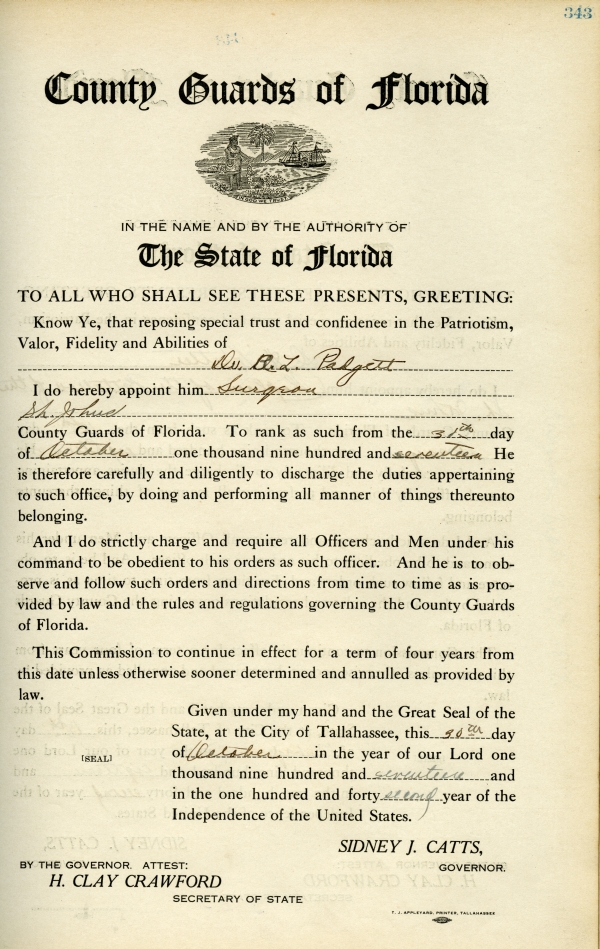 343
County Guards of Florida
IN GOD WE TRUST
IN THE NAME AND BY THE AUTHORITY OF
The State of Florida
TO ALL WHO SHALL SEE THESE PRESENTS, GREETING:
Know Ye, that reposing special trust and confidenee in the Patriotism,
Valor, Fidelity and Abilities of
Dr. B. L. Padgett
I do hereby appoint him Surgeon
St. Johns
County Guards of Florida. To rank as such from the 31th day
of October one thousand nine hundred and seventeen He
is therefore carefully and diligently to discharge the duties appertaining
to such office, by doing and performing all manner of things thereunto
belonging.
And I do strictly charge and require all Officers and Men under his
command to be obedient to his orders as such officer. And he is to ob-
serve and follow such orders and directions from time to time as is pro-
vided by law and the rules and regulations governing the County Guards
of Florida.
This Commission to continue in effect for a term of four years from
this date unless otherwise sooner determined and annulled as provided by
law.
Given under my hand and the Great Seal of the
State, at the City of Tallahassee, this 30th day
[SEAL] of October in the year of our Lord one
thousand nine hundred and seventeen and
in the one hundred and forty second year of the
Independence of the United States.
SIDNEY J. CATTS,
GOVERNOR.
BY THE GOVERNOR. ATTEST:
H. CLAY CRAWFORD
SECRETARY OF STATE
T. J. APPLEYARD, PRINTER, TALLAHASSEE